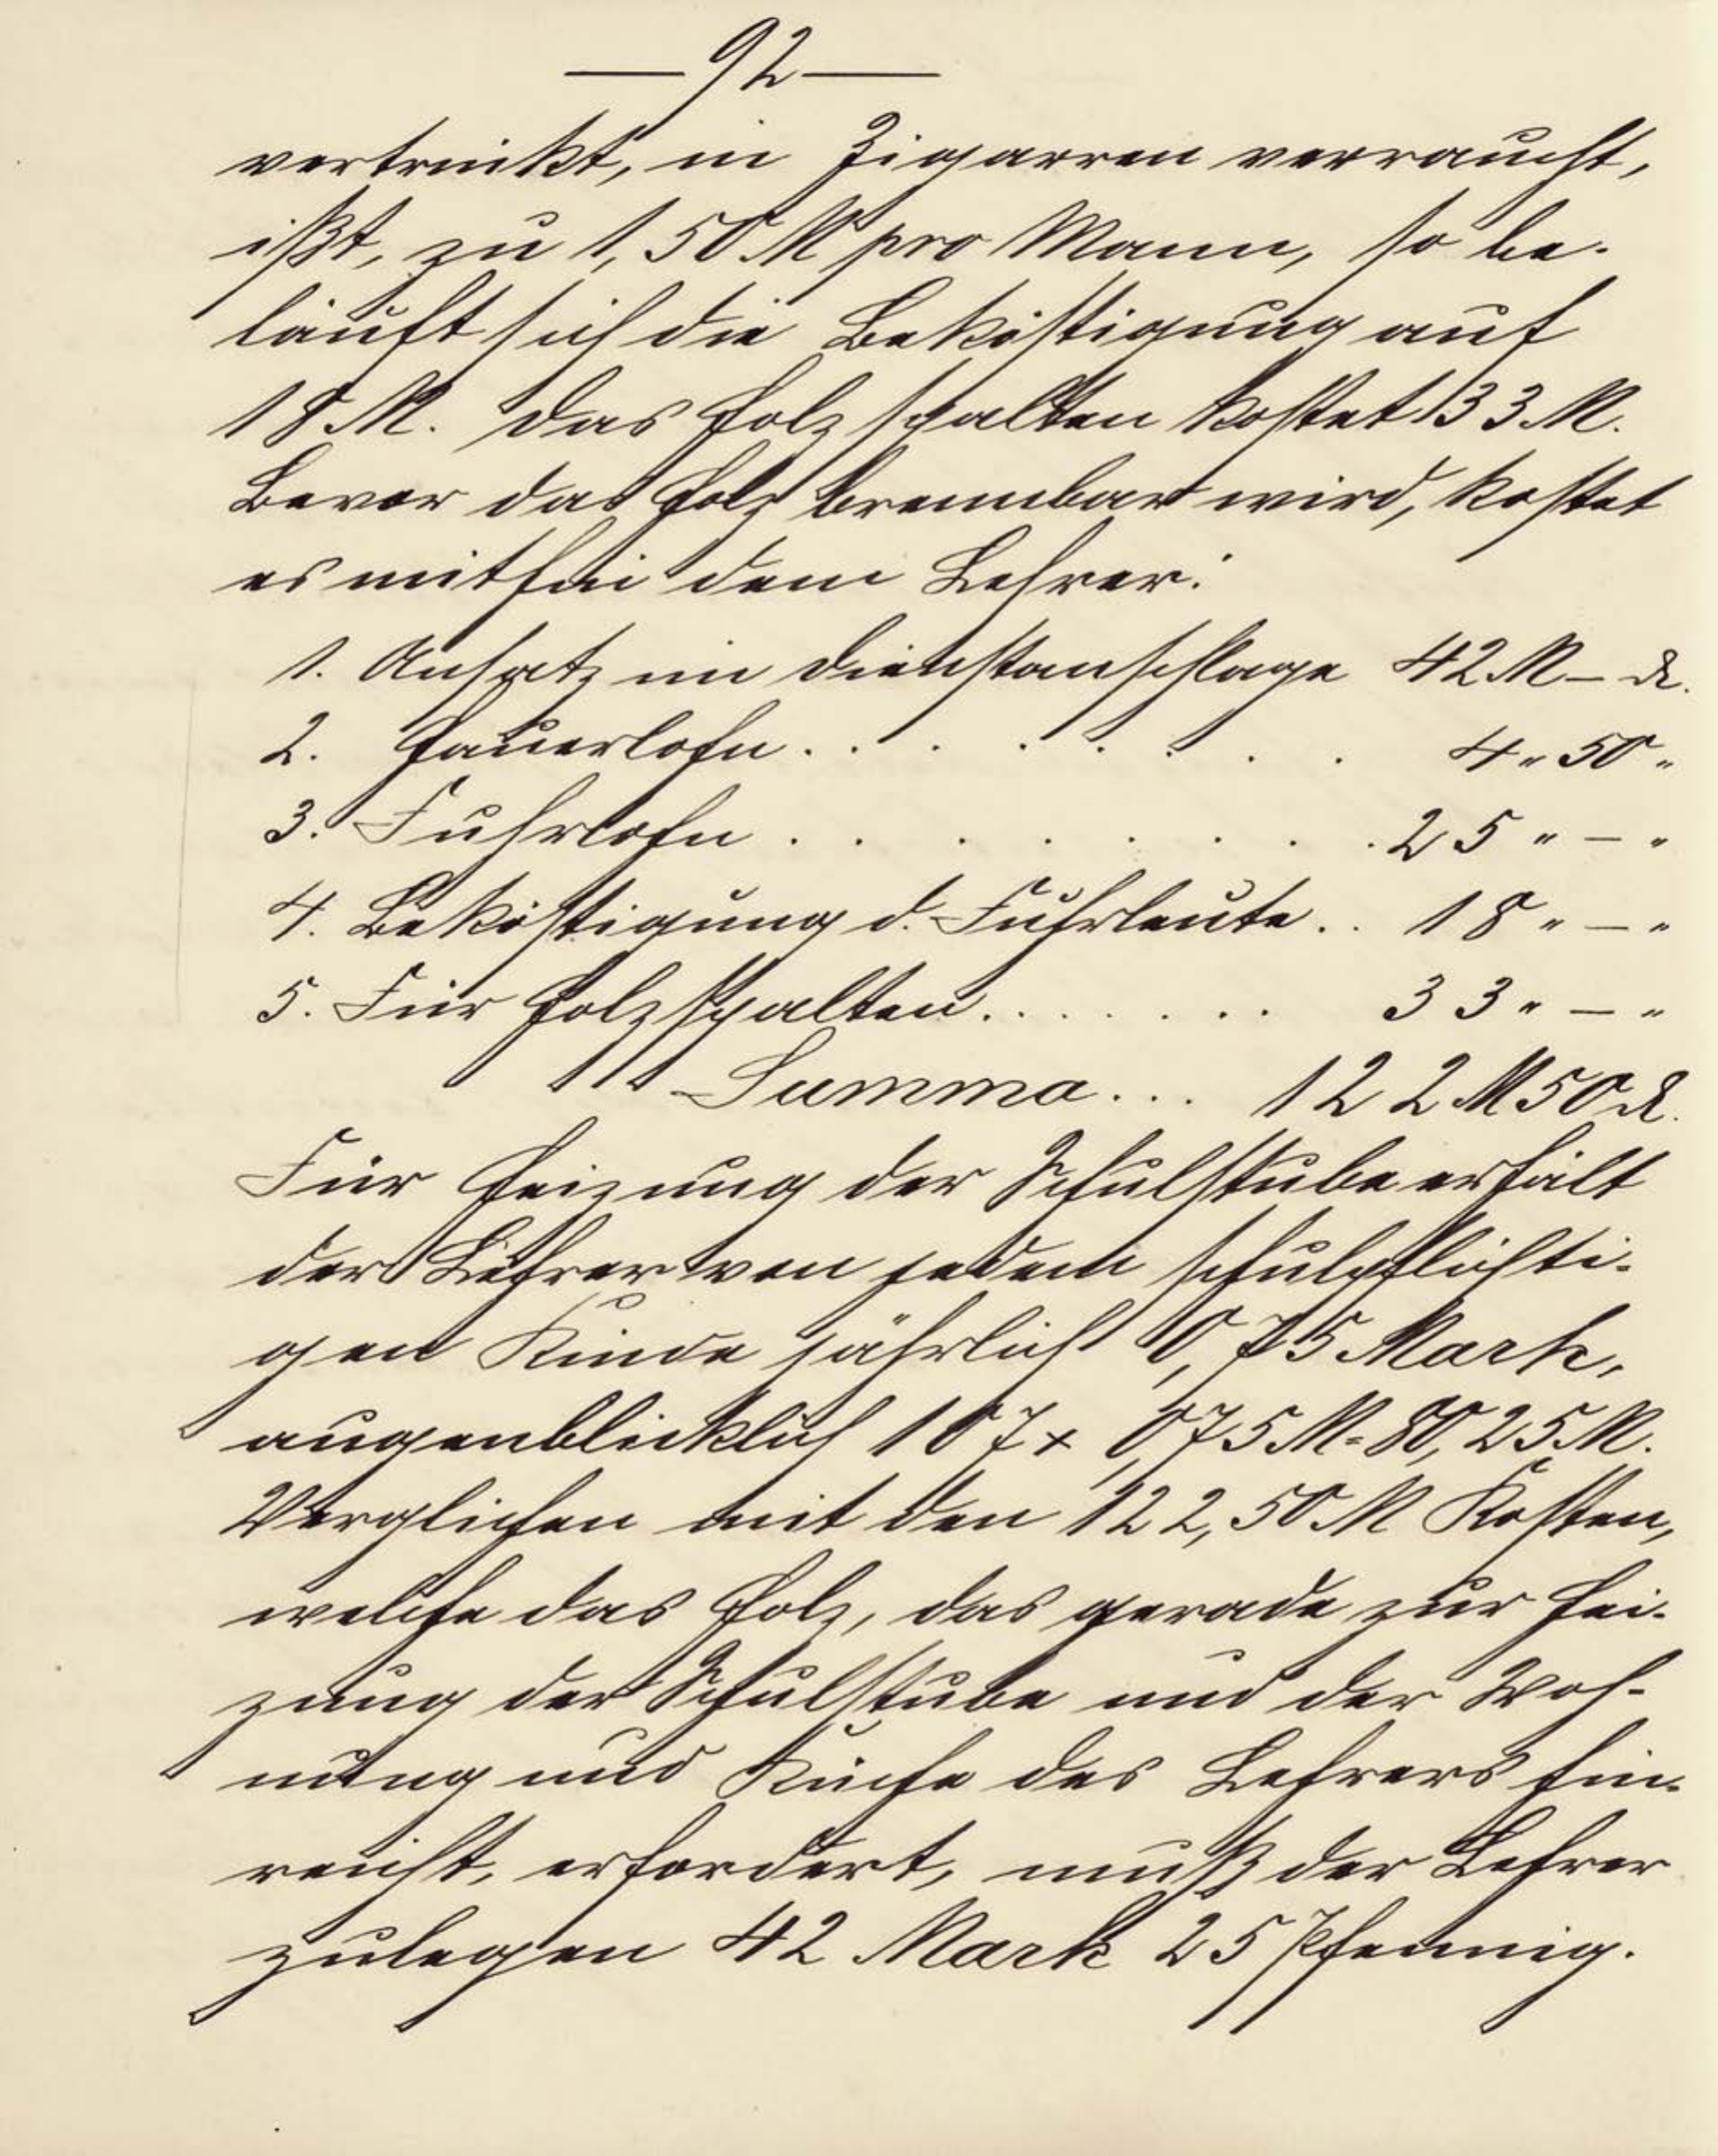 — 92 —
vertrinkt, in Zigarren verraucht,
ißt, zu 1,50 M pro Mann, so be-
läuft sich die Beköstigung auf
18 M. Das Holzspalten kostet 33 M.
Bevor das Holz brennbar wird, kostet
es mithin dem Lehrer:
1. Ansatz im Dienstanschlage 42 M – ₰.
2. Hauerlohn . . . . . . . . 4 " 50 "
3. Fuhrlohn . . . . . . . . 25 " – "
4. Beköstigung d. Fuhrleute . . 18 " – "
5. Für Holzspalten . . . . . . . 33 " – "
Summa . . . 122 M 50 ₰.
Für Heizung der Schulstube erhält
der Lehrer von jedem schulpflichti-
gen Kinde jährlich 0,75 Mark,
augenblicklich 107 x 0,75 M = 80,25 M.
Verglichen mit den 122,50 M Kosten,
welche das Holz, das gerade zur Hei-
zung der Schulstube und der Woh-
nung und Küche des Lehrers hin-
reicht, erfordert, muß der Lehrer
zulegen 42 Mark 25 Pfennig.